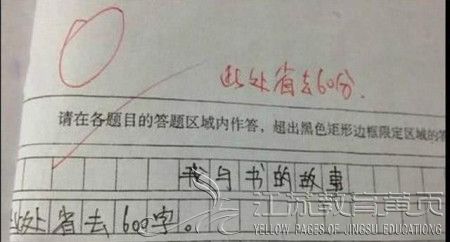 此处省去60分.
请在各题目的答题区域内作答，超出黑色矩形边框限定区域的答
我与书的故事
此处省去600字。
江苏教育黄页
YELLOW PAGES OF JINGSU EDUCATIONG